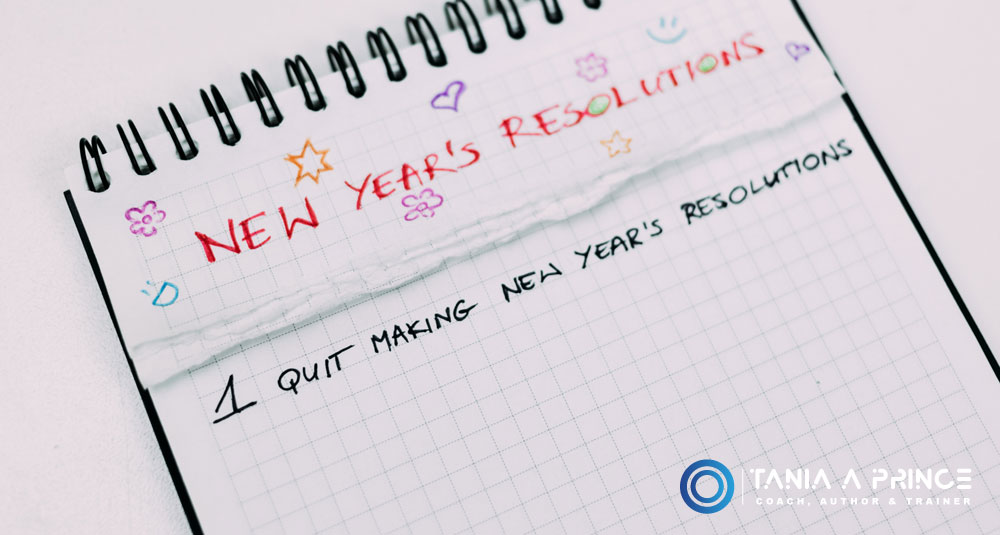 NEW YEAR'S RESOLUTIONS
1 QUIT MAKING NEW YEAR'S RESOLUTIONS
TANIA A PRINCE
COACH, AUTHOR & TRAINER